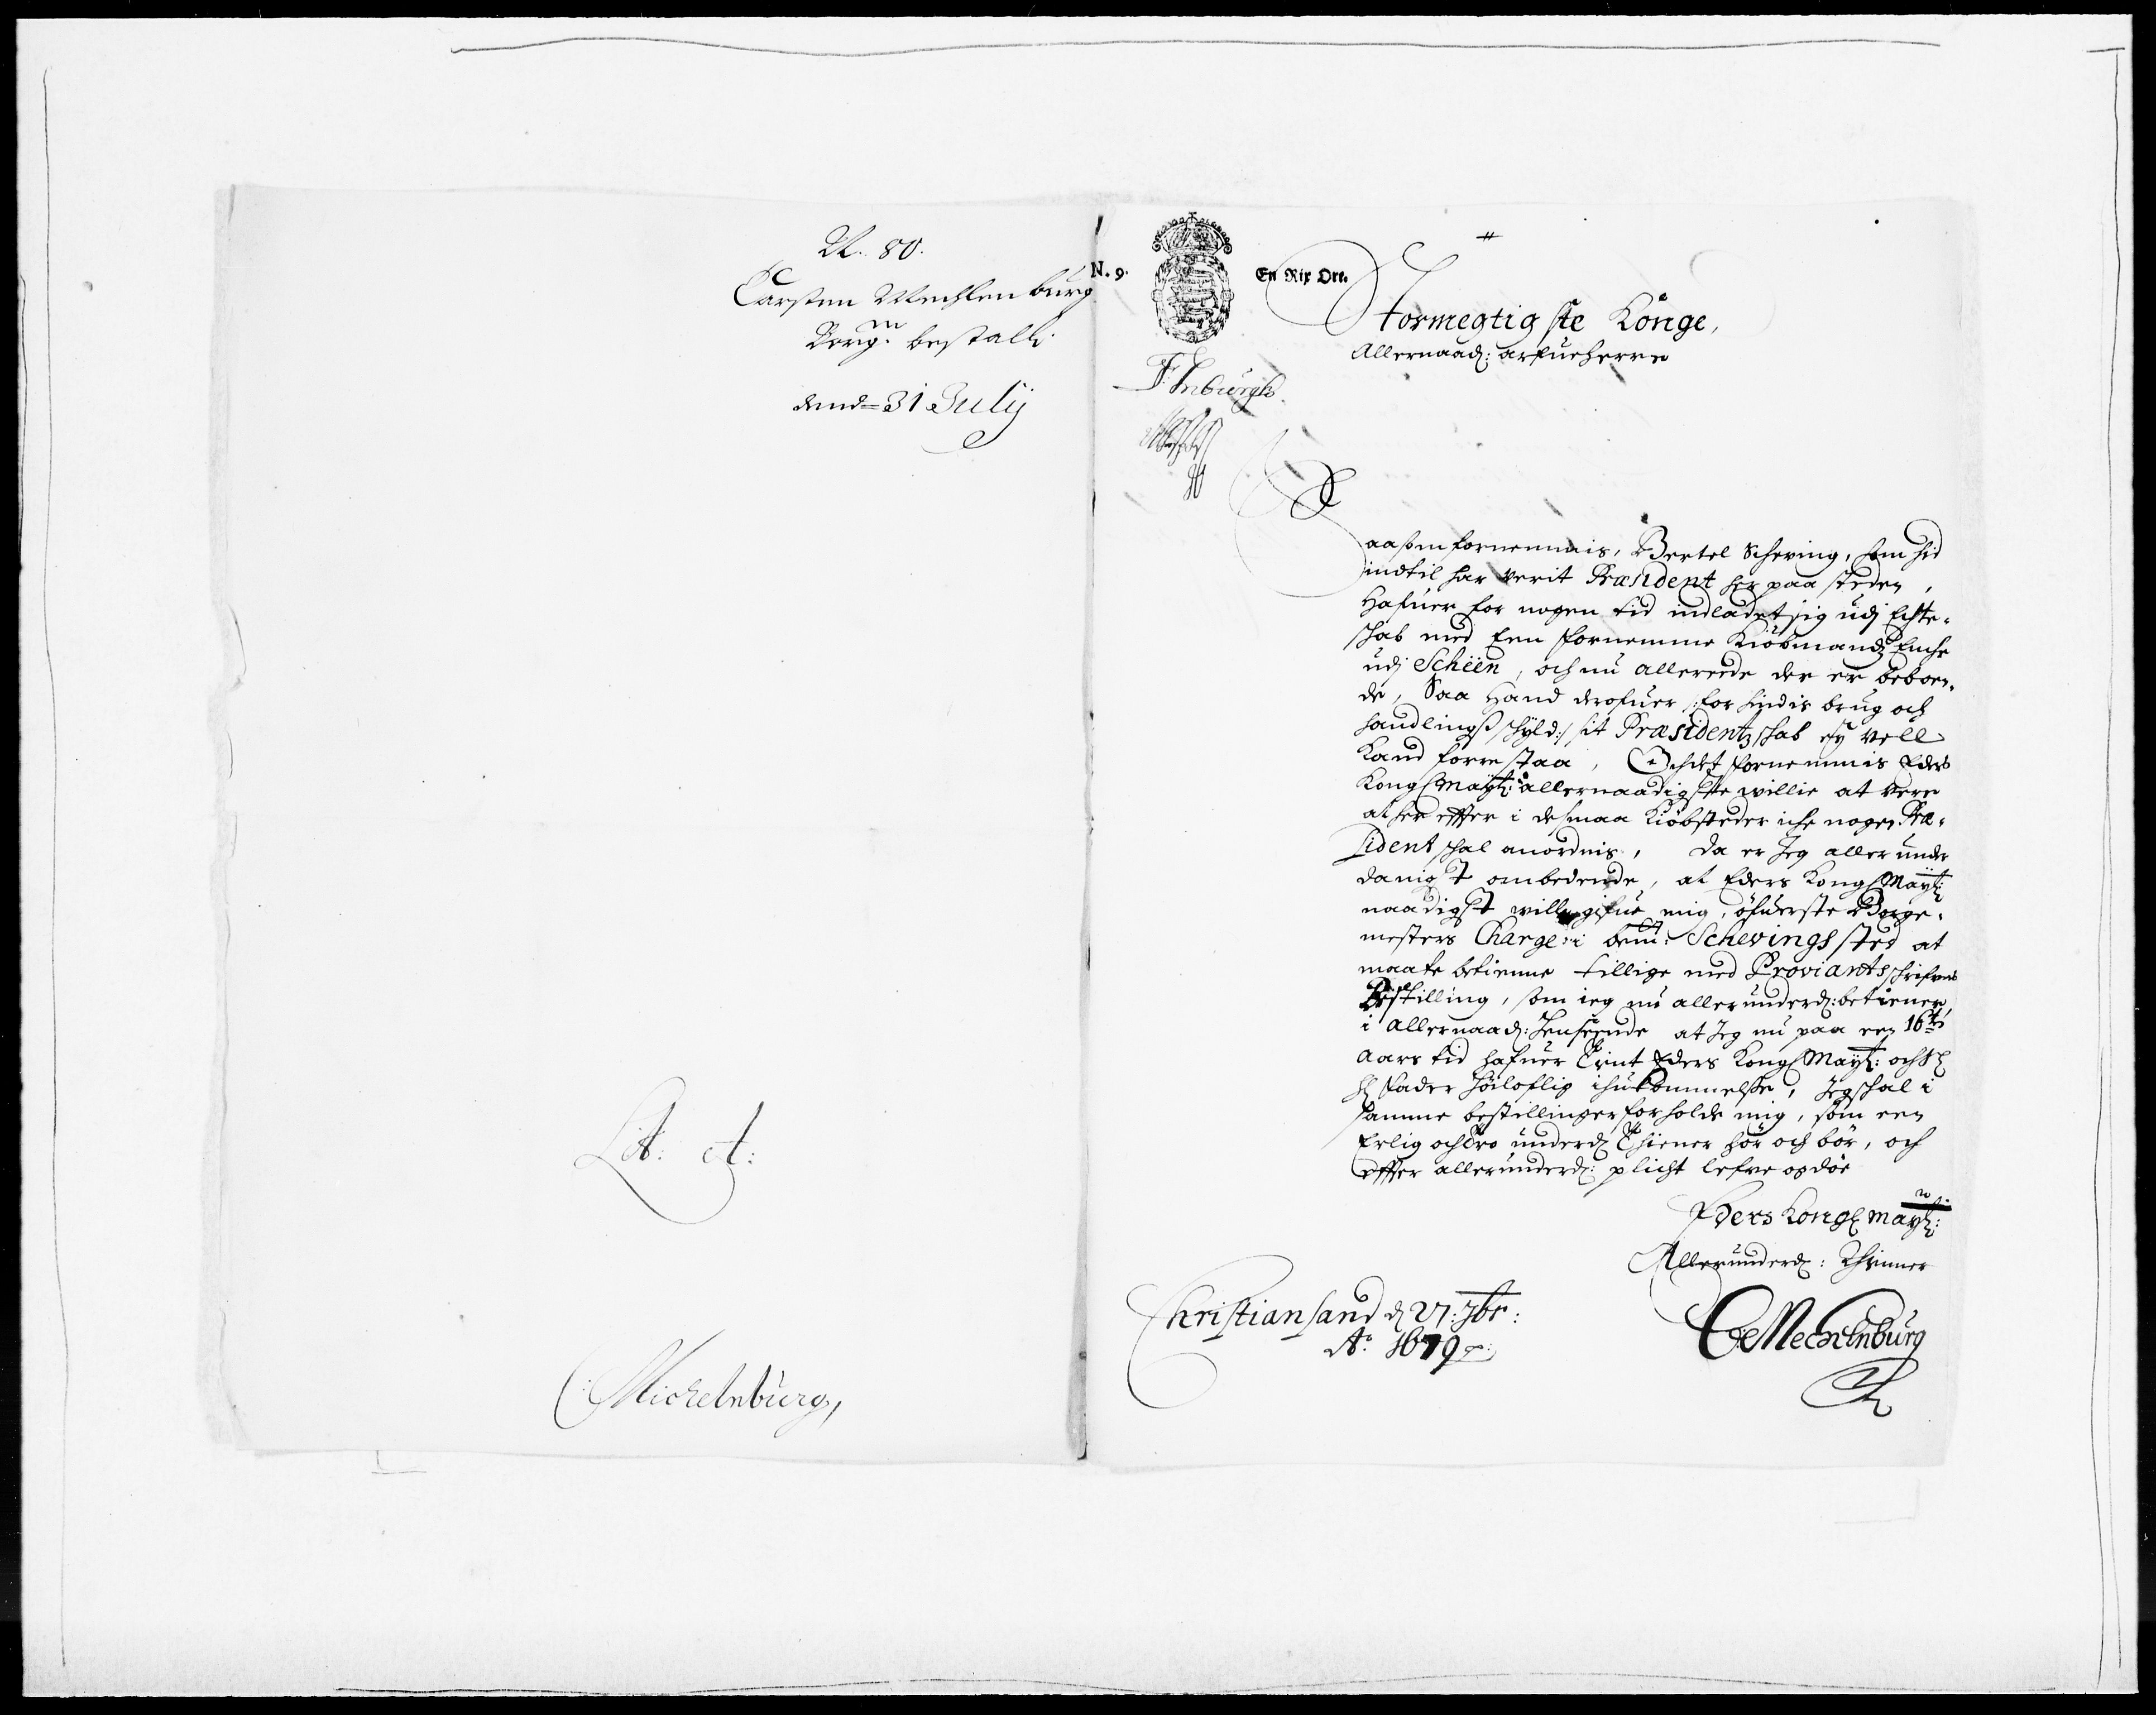 N. 80.
Carsten Mechlenburg
Borgm. bestall:
dend = 31 July
Lit: A:
C: Michelnburg,
N. 9.
En Rix Ort.
Stormegtigste Könge,
Allernaad: arfueherre
Saasom fornemmis, Bertel Scheving, som hid
indtil har verit Præsident her paa steden,
Hafuer for nogen tid indladet sig udj Echte-
schab med Een fornemme Kiöbmandz Enche
udj Schëen, och nu allerede der er beboen-
de, Saa Hand derofuer /: for hindis brug och
handlingsschyld :/ sit Præsidentzschab ey vell
kand forrestaa, Och det fornemmis Eders
Kongl Maytz: allernaadigste willie at vere
at her effter i de smaa Kiöbsteder iche nogen Præ-
sident schal anordnis, da er Jeg allerunder
danigst ombedende, at Eders Kongl Maytz:
naadigst will gifue mig, öfuerste Borge-
mesters Charge: i bem: Schevings sted at
maate betienne tillige med Proviantsschrifuers
Bestilling, som ieg nu allerunderd: betiener,
i allernaad: henseende at Jeg nu paa een 16ten
aars tid hafuer tient Eders Kongl Maytz: och
Fader höiloflig ihukommelsse, Jeg schal i
samme bestillinger forholde mig, som een
Erlig och tro underd Thiener hör och bör, och
effter allerunderd: plicht lefve og döe
Eders Kongl Maytz:
Allerunderd: Thienner
Christiansand d 27: 7br:
Ao. 1679
C: Mechlenburg